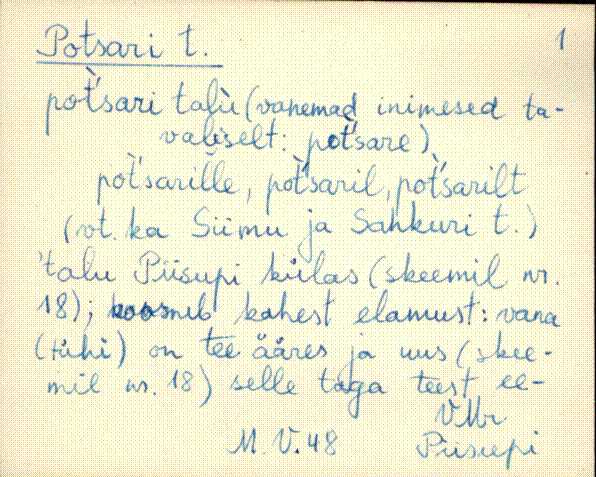 Potsari t. 1
pot̀'sari talu (vanemad inimesed ta-
valiselt: pot̀'sare)
pot̀'sarille, pot̀'saril, pot̀'sarilt
(vt. ka Siimu ja Sahkuri t.)
'talu Piisupi külas (skeemil nr.
18); koosneb kahest elamust: vana
(tühi) on tee ääres ja uus (skee-
mil nr. 18) selle taga teest ee-
VMr
M. V. 48 Piisupi